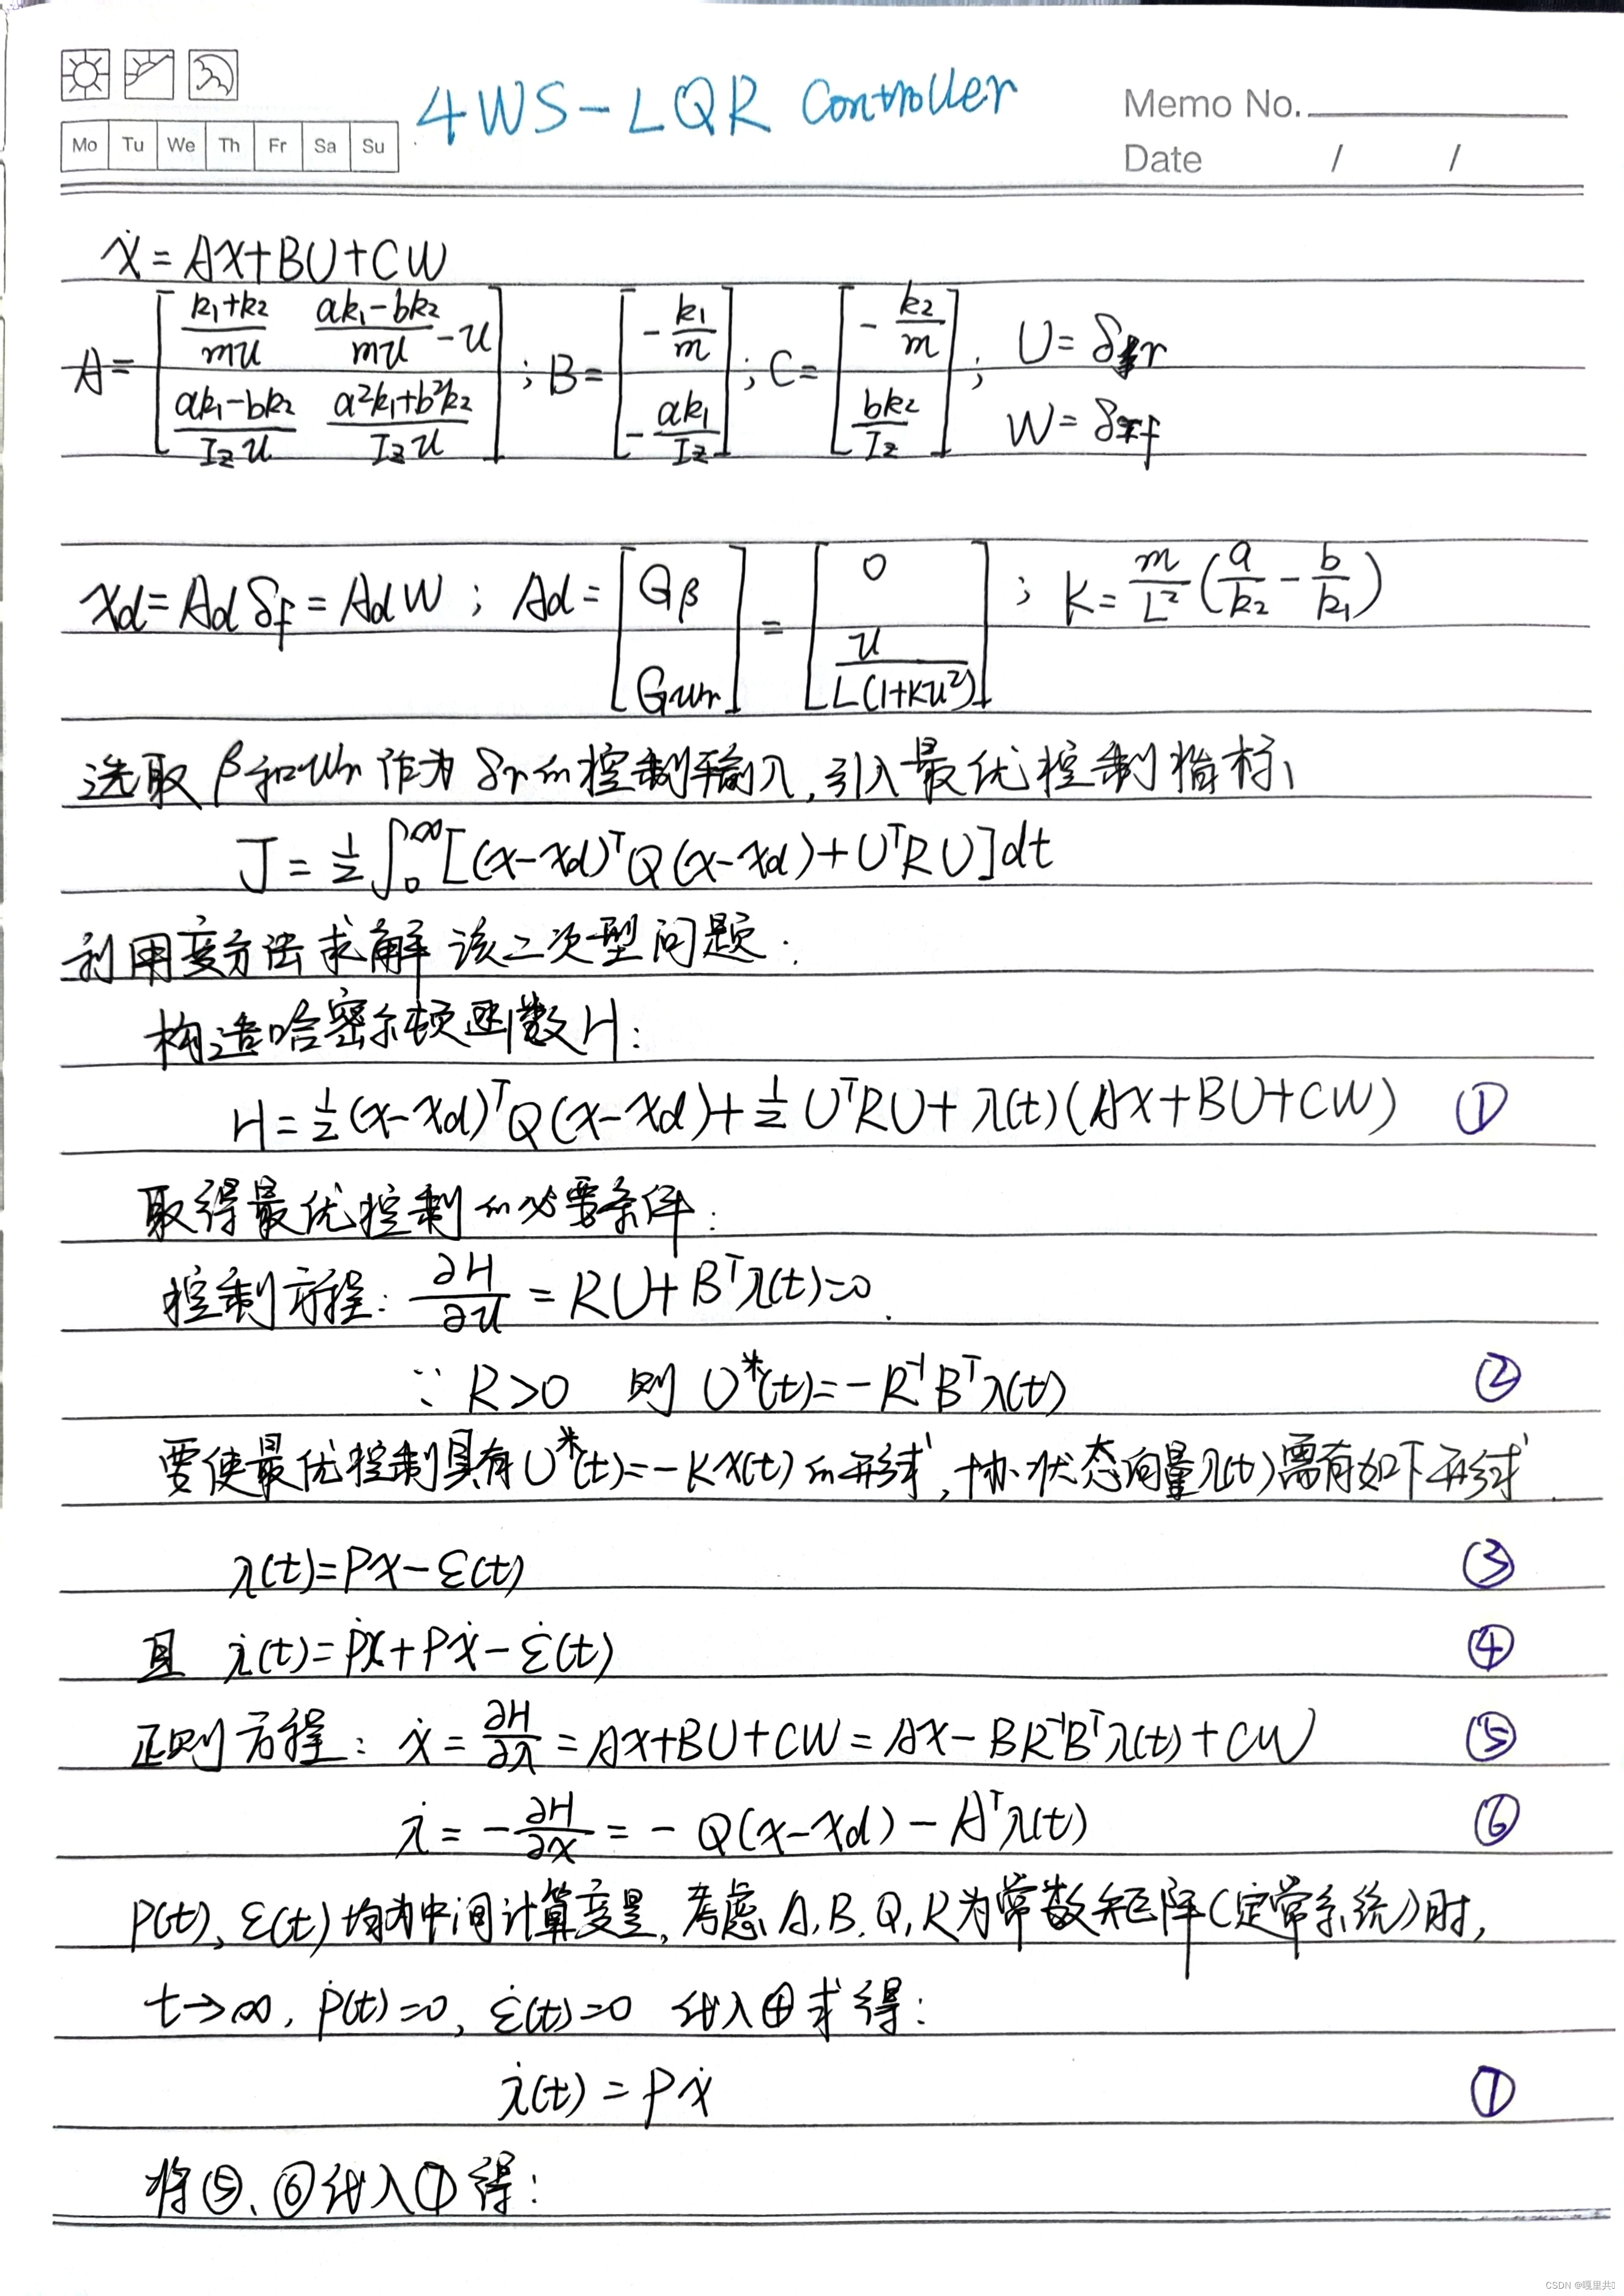 4WS-LQR Controller
Memo No.
Mo Tu We Th Fr Sa Su
Date / /
ẋ = AX+BU+CW
A = [ (k₁+k₂)/(mu)  (ak₁-bk₂)/(mu) - u ; (ak₁-bk₂)/(I_z u)  (a²k₁+b²k₂)/(I_z u) ] ; B = [ -k₁/m ; -ak₁/I_z ] ; C = [ -k₂/m ; bk₂/I_z ] ; U = δr
W = δf
xd = Ad δf = Ad W ; Ad = [ Gβ ; Gwr ] = [ 0 ; u/(L(1+Ku²)) ] ; K = m/L² (a/k₂ - b/k₁)
选取 β和wr 作为 δr的控制输入,引入最优控制指标,
J = ½∫₀^∞ [(x-xd)ᵀQ(x-xd)+UᵀRU]dt
利用变分法求解该二次型问题.
构造哈密尔顿函数H:
H = ½(x-xd)ᵀQ(x-xd)+½UᵀRU+λ(t)(AX+BU+CW) ①
取得最优控制的必要条件:
控制方程: ∂H/∂u = RU+Bᵀλ(t)=0.
∵ R>0 则 U*(t)=-R⁻¹Bᵀλ(t) ②
要使最优控制具有U*(t)=-Kx(t)的形式,协状态向量λ(t)需有如下形式.
λ(t)=Px-ε(t) ③
且 λ̇(t)=Ṗx+Pẋ-ε̇(t) ④
正则方程: ẋ = ∂H/∂λ = AX+BU+CW = AX-BR⁻¹Bᵀλ(t)+CW ⑤
λ̇ = -∂H/∂x = -Q(x-xd)-Aᵀλ(t) ⑥
P(t), ε(t)均为中间计算变量,考虑A, B, Q, R为常数矩阵(定常系统)时,
t→∞, Ṗ(t)=0, ε̇(t)=0 代入④求得:
λ̇(t) = Pẋ ⑦
将⑤、⑥代入⑦得: